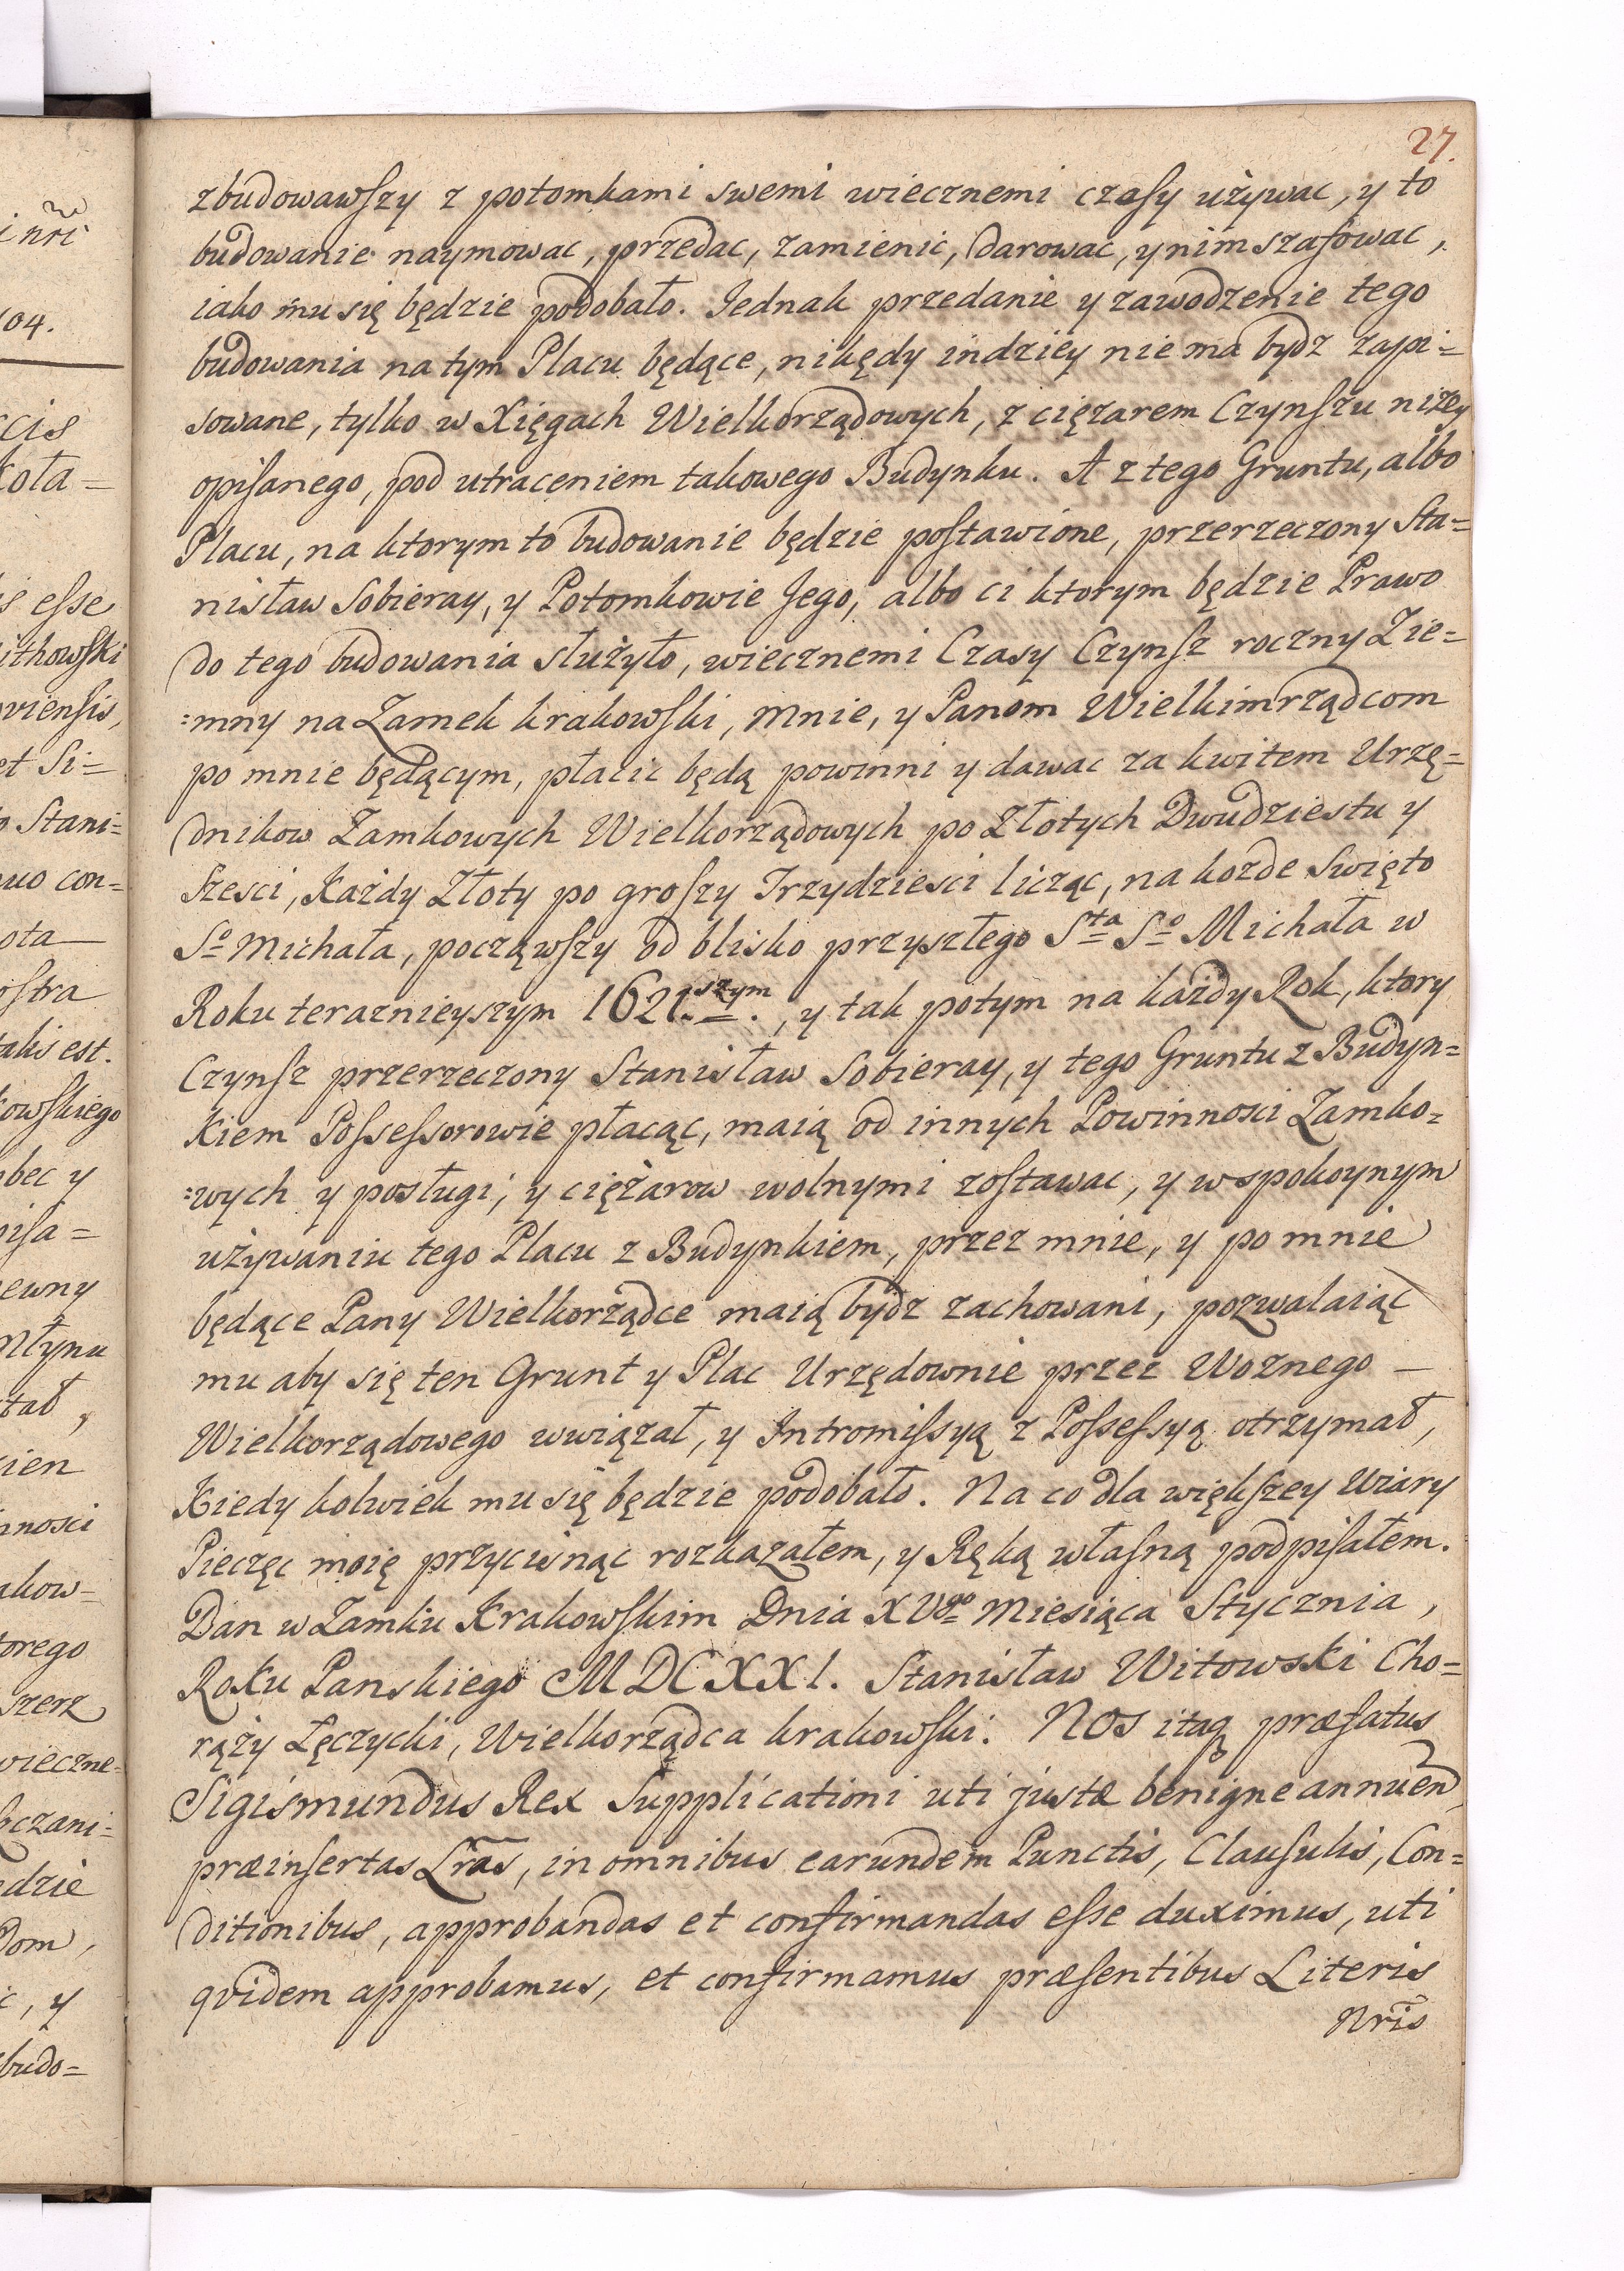 27.
zbudowawszy z potomkami swemi wiecznemi czasy używac, y to
budowanie naymowac, przedac, zamienic, darowac, y nim szafowac,
iako mu się będzie podobało. Jednak przedanie y zawodzenie tego
budowania na tym Placu będące, nikędy indziey nie ma bydz zapi=
sowane, tylko w Xięgach Wielkorządowych, z cięzarem Czynszu niżey
opisanego, pod utraceniem takowego Budynku. A z tego Gruntu, albo
Placu, na ktorym to budowanie będzie postawione, przerzeczony Sta=
nisław Sobieray, y Potomkowie Jego, albo ci ktorym będzie Prawo
do tego budowania służyło, wiecznemi Czasy Czynsz roczny Zie=
=mny na Zamek krakowski, mnie, y Panom Wielkimrządcom
po mnie będącym, płacic będą powinni y dawac za kwitem Urzę=
dnikow Zamkowych Wielkorządowych po Złotych Dwudziestu y
Szesci, Każdy Złoty po groszy Trzydziesci licząc, na kożde Swięto
So Michała, począwszy od blisko przyszłego Sta So Michała w
Roku teraznieyszym 1621.szym., y tak potym na każdy Rok, ktory
Czynsz przerzeczony Stanisław Sobieray, y tego Gruntu z Budyn=
Kiem Possessorowie płacąc, maią od innych Powinnosci Zamko=
=wych y posługi, y ciężarow wolnymi zostawac, y w spokoynym
używaniu tego Placu z Budynkiem, przez mnie, y po mnie
będące Pany Wielkorządce maią bydz zachowani, pozwalaiąc
mu aby się ten Grunt y Plac Urzędownie przez Woznego —
Wielkorządowego wwiązał, y Intromissyą z Possessyą otrzymał,
Kiedy kolwiek mu się będzie podobało. Na co dla większey Wiary
Pieczęc moię przycisnąc rozkazałem, y Ręką własną podpisałem.
Dan w Zamku Krakowskim Dnia XVgo Miesiąca Stycznia,
Roku Panskiego MDCXXI. Stanisław Witowski Cho=
rąży Łęczycki, Wielkorządca krakowski. Nos itaq præfatus
Sigismundus Rex Supplicationi uti justæ benigne annuen
præinsertas Lras, in omnibus earundem Punctis, Clausulis, Con=
ditionibus, approbandas et confirmandas esse duximus, uti
qvidem approbamus, et confirmamus præsentibus Literis
Nris
i nri
104.
esse
et Si=
o Stani=
uo con=
ota
ostra
talis est.
kowskiego
bec y
ewny
młynu
ien
akow=
orego
szerz
wieczne=
czani=
dzie
Dom,
c, y
budo=